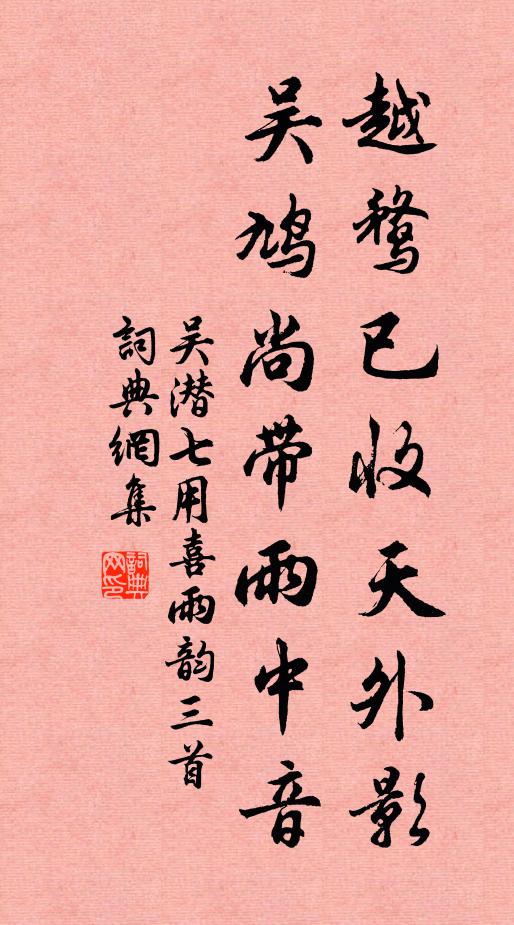 越鹜已收天外影
吴鸠尚带雨中音
吴潜七用喜雨韵三首
詞典網集
詞典網印